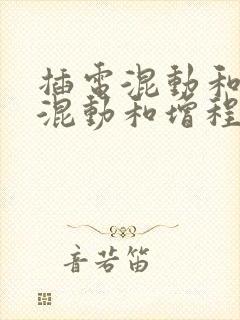 插电混動和
混動和增程
音若笛